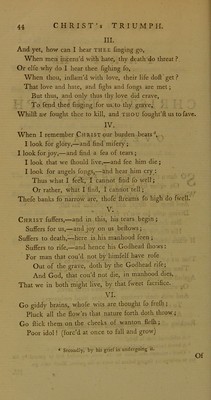 44 CHRIST's TRIUMPH.
III.
And yet, how can I hear THEE singing go,
When men incens'd with hate, thy death do threat?
Or else why do I hear thee sighing so,
When thou, inflam'd with love, their life dost get?
That love and hate, and sighs and songs are met;
But thus, and only thus thy love did crave,
To send thee singing for us to thy grave,
Whilst we sought thee to kill, and THOU sought'st us to save.
IV.
When I remember CHRIST our burden bears *,
I look for glory,—and find misery;
I look for joy,—and find a sea of tears;
I look that we should live,—and see him die;
I look for angels songs,—and hear him cry:
Thus what I seek, I cannot find so well;
Or rather, what I find, I cannot tell;
These banks so narrow are, those streams so high do swell.
V.
CHRIST suffers,—and in this, his tears begin;
Suffers for us,—and joy on us bestows;
Suffers to death,—here is his manhood seen;
Suffers to rise,—and hence his Godhead shows:
For man that cou'd not by himself have rose
Out of the grave, doth by the Godhead rise;
And God, that cou'd not die, in manhood dies,
That we in both might live, by that sweet sacrifice.
VI.
Go giddy brains, whose wits are thought so fresh;
Pluck all the flow'rs that nature forth doth throw;
Go stick them on the cheeks of wanton flesh;
Poor idol! (forc'd at once to fall and grow)
* Eternally, by his grief in undergoing it.
Of